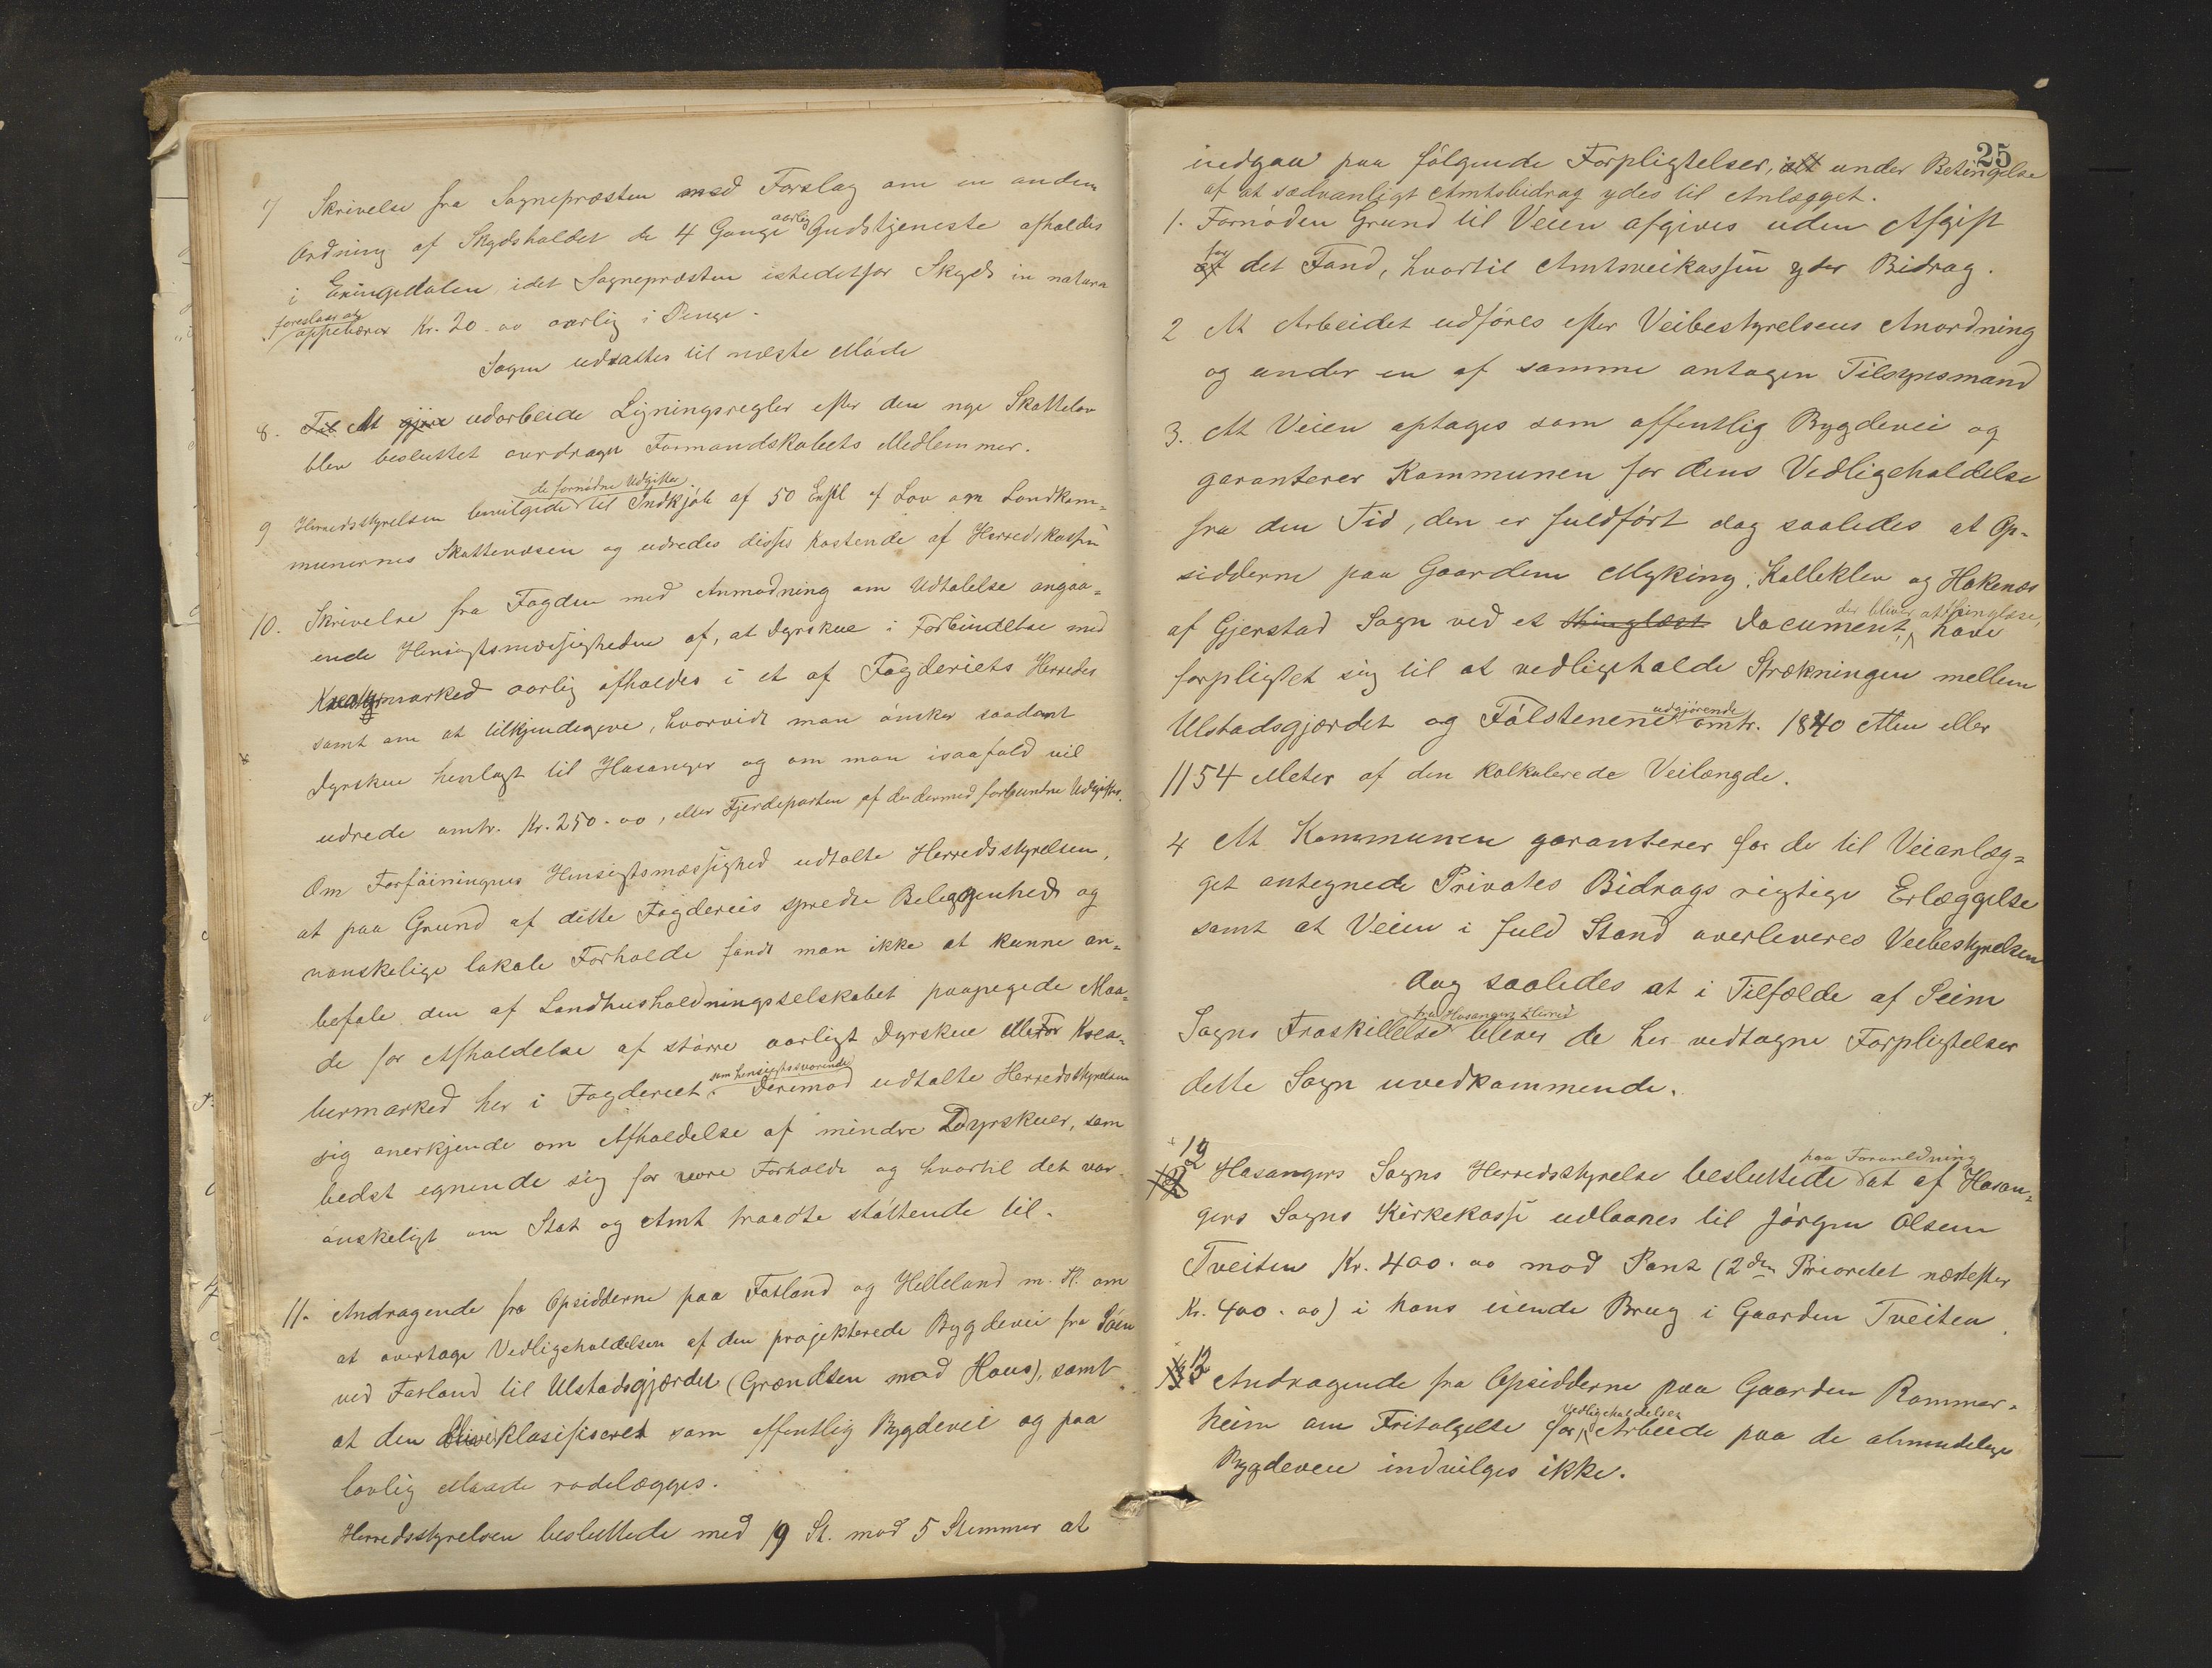 7/ Skrivelse fra Sognepræsten med Forslag om en anden
Ordning af Skydsholdet de 4 Gange aarlig Gudstjeneste afholdes
i Exingedalen, idet Sognepræsten istedetfor Skyds in natura
foreslaar at oppebærer Kr. 20.00 aarlig i Penge.
Sagen udsattes til næste Møde
8. Til At gjøre udarbeide Ligningsregler efter den nye Skattelov
blev besluttet overdragen Formandskabets Medlemmer.
9 Herredsstyrelsen bevilgede de fornødne Udgifter til Indkjøb af 50 Expl af Lov om Landkom-
munernes Skattevæsen og udredes disses Kostende af Herredskassen
10. Skrivelse fra Fogden med Anmodning om Udtalelse angaa-
ende Hensigtsmæssigheden af, at Dyrskue i Forbindelse med
Kreaturmarked aarlig afholdes i et af Fogderiets Herreder
samt om at tilkjendegive, hvorvidt man ønsker saadant
Dyrskue henlagt til Hosanger og om man isaafald vil
udrede omtr. Kr. 250.00, eller Fjerdeparten af de dermed forbundne Udgifter.
Om Forføiningens Hensigtsmæssighed udtalte Herredsstyrelsen,
at paa Grund af dette Fogderies spredte Beleggenhed og
vanskelige lokale Forholde fandt man ikke at kunne an-
befale den af Landhusholdningsselskabet paapegede Maa-
de for Afholdelse af større aarligt Dyrskue eller for Krea-
turmarked her i Fogderiet som hensigtssvarende. Derimod udtalte Herredsstyrelsen
sig anerkjende om Afholdelse af mindre Dyrskuer, som
bedst egnende sig for vore Forholde og hvortil det var
ønskeligt om Stat og Amt traadte støttende til.
11. Andragende fra Opsidderne paa Fosland og Helleland m. fl. om
at overtage Vedligeholdelsen af den projekterede Bygdevei fra Søen
ved Fosland til Ulstadsgjærdet (Grændsen mod Haus), samt
at den bliver klasificeret som offentlig Bygdevei og paa
lovlig Maade rodelægges.
Herredsstyrelsen besluttede med 19 St. mod 5 Stemmer at
25
indgaa paa følgende Forpligtelser, alt under Betingelse
af at sædvanligt Amtsbidrag ydes til Anlægget.
1. Fornøden Grund til Veien afgives uden Afgift
af for det Fond, hvortil Amtsveikassen yder Bidrag.
2 At Arbeidet udføres efter Veibestyrelsens Anordning
og under en af samme antagen Tilsynsmand
3. At Veien optages som offentlig Bygdevei og
garanterer Kommunen for dens Vedligeholdelse
fra den Tid, den er fuldført dog saaledes at Op-
sidderne paa Gaardene Myking, Kalleklev og Hokenæs
af Gjerstad Sogn ved et thinglæst Document, der bliver at thinglæse, have
forpligtet sig til at vedligeholde Strækningen mellem
Ulstadsgjærdet og Følstenene udgjørende omtr. 1840 Alen eller
1154 Meter af den kalkulerede Veilængde.
4 At Kommunen garanterer for de til Veianlæg-
get antegnede Privates Bidrags rigtige Erlæggelse
samt at Veien i fuld Stand overleveres Veibestyrelsen
dog saaledes at i Tilfælde af Seim
Sogns Fraskillelse fra Hosangers Herred bliver de her vedtagne Forpligtelser
dette Sogn uvedkommende.
12 Hosangers Sogns Herredsstyrelse besluttede paa Foranledning at af Hosan-
gers Sogns Kirkekasse udlaanes til Jørgen Olsen
Tveiten Kr. 400.00 mod Pant (2den Prioritet næstefter
Kr. 400.00) i hans eiende Brug i Gaarden Tveiten.
13 Andragende fra Opsidderne paa Gaarden Rommer-
heim om Fritagelse for Vedligeholdelses Arbeide paa de almindelige
Bygdeveie indvilges ikke.